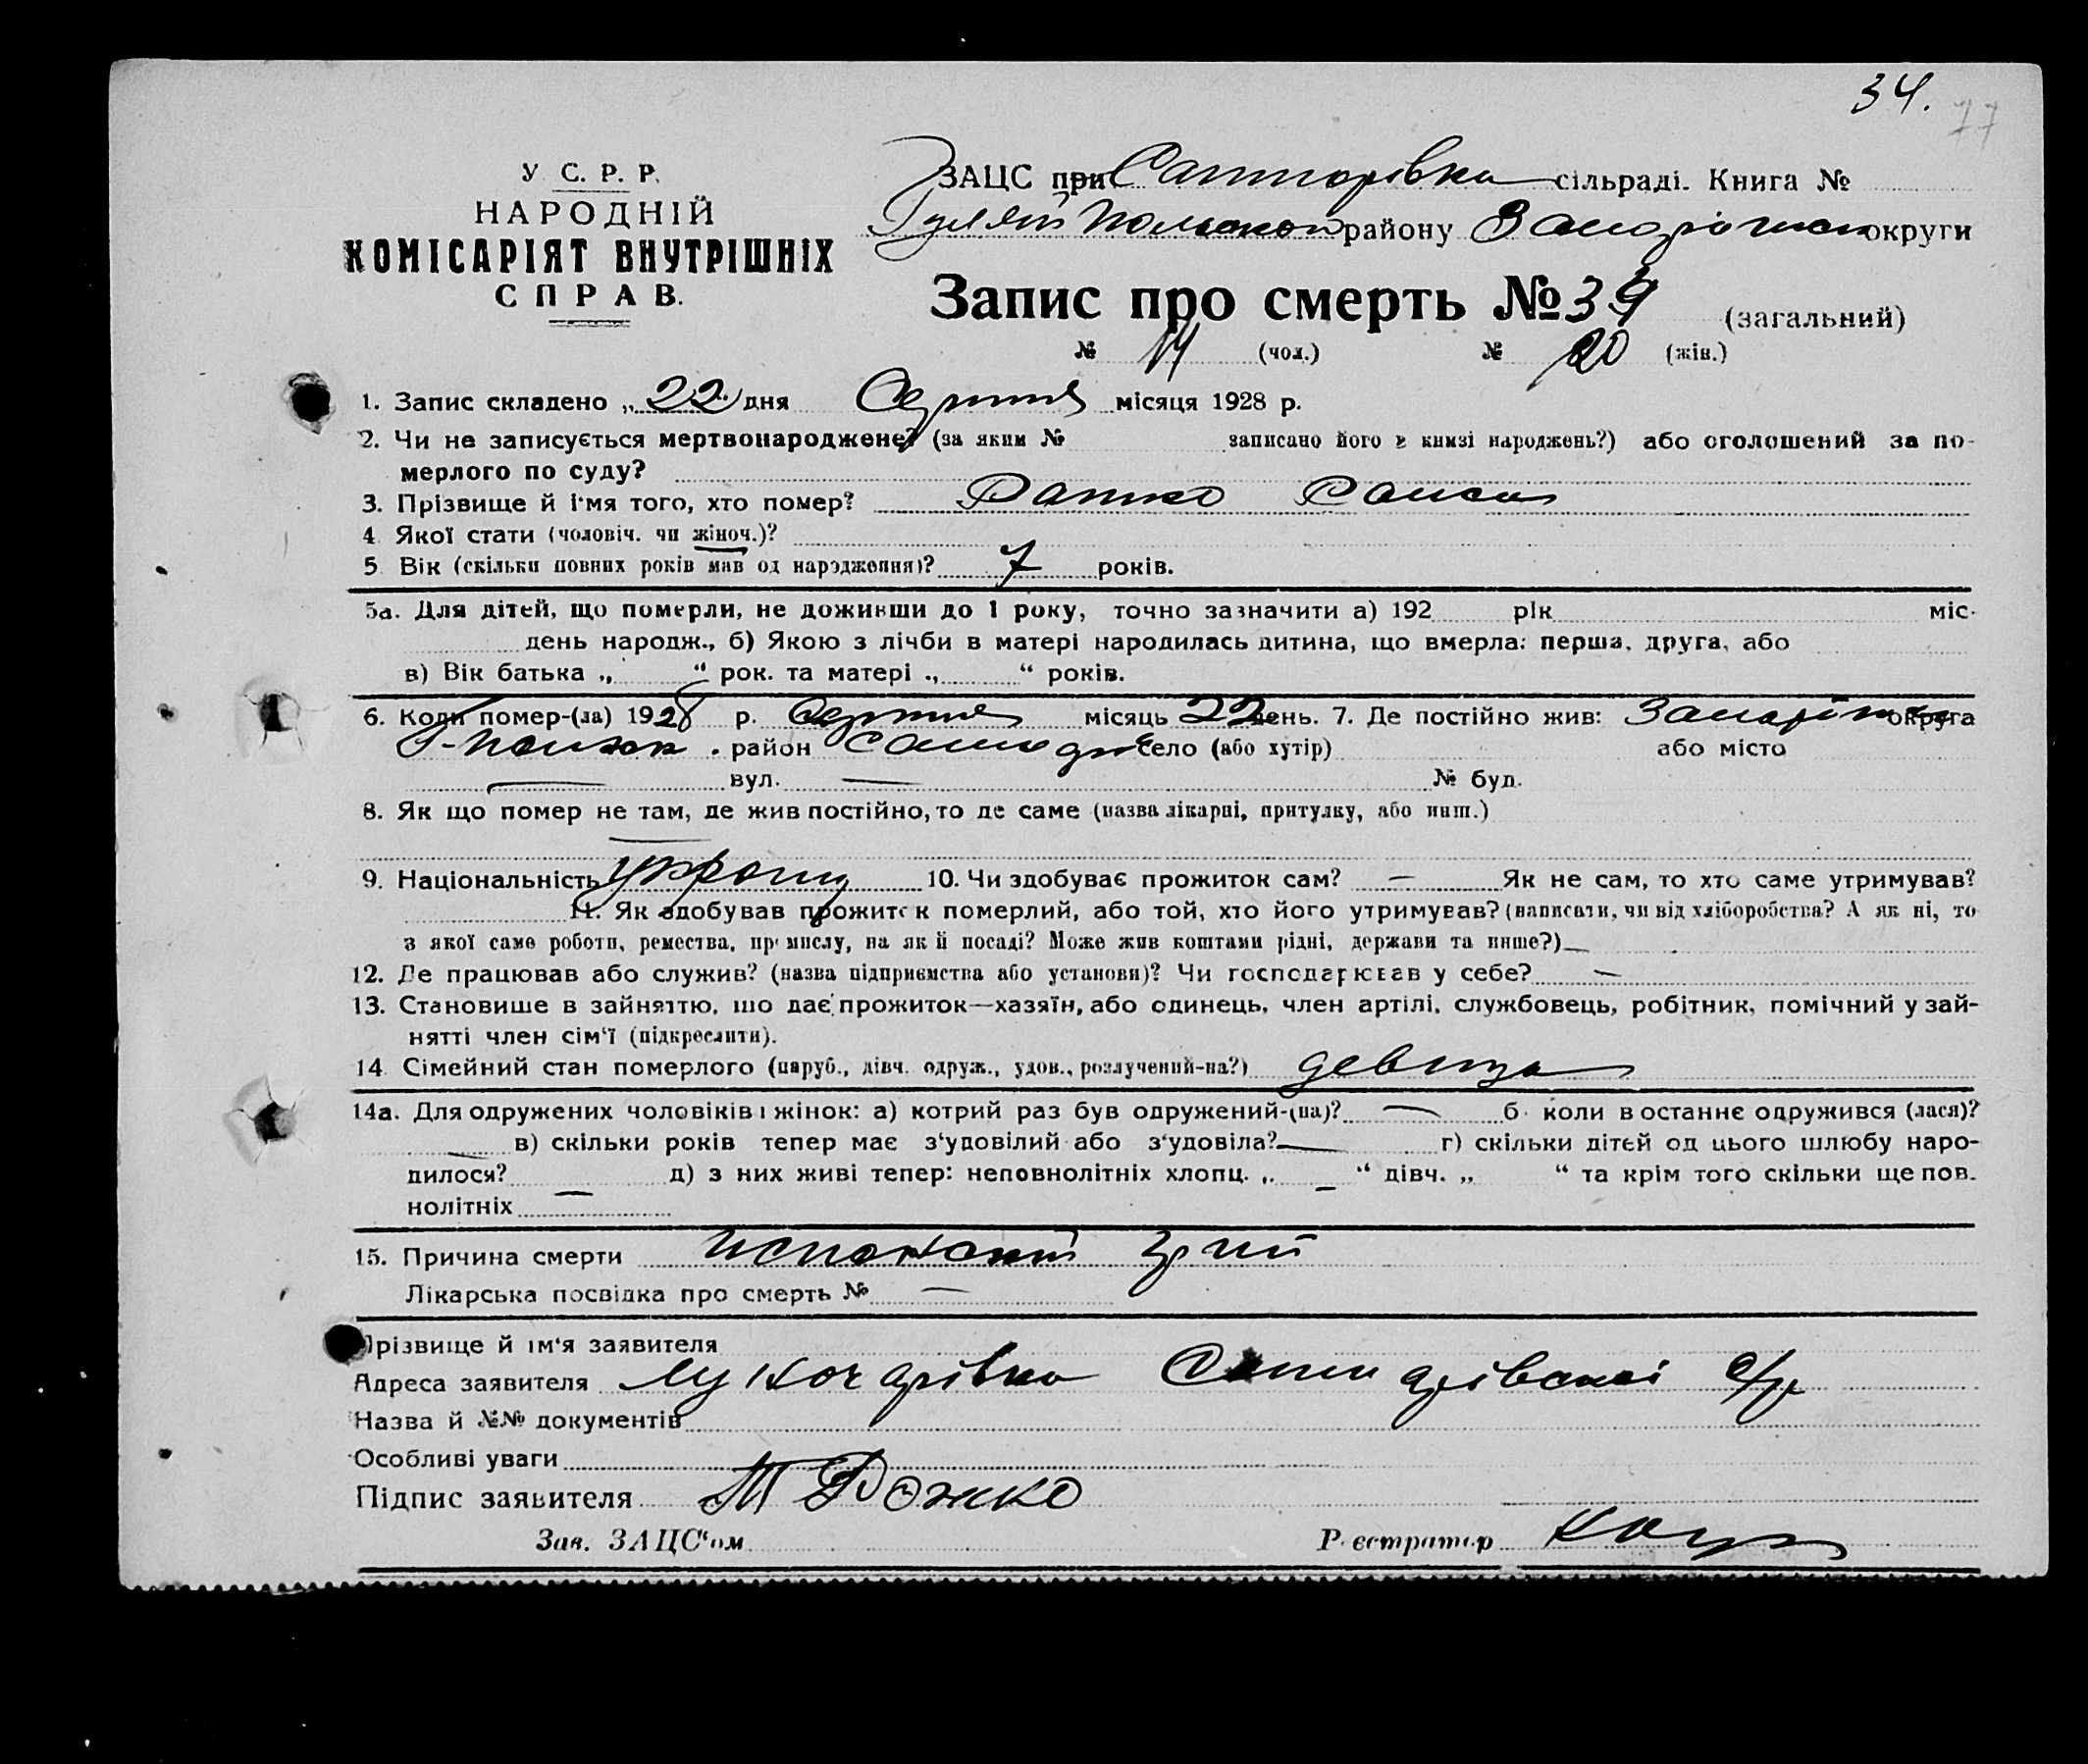 34.
77
У С. Р. Р.
НАРОДНІЙ
КОМІСАРІЯТ ВНУТРІШНІХ
СПРАВ.
ЗАЦС при сільраді. Книга №
Гуляй Польськог району Запоріжськ округи
Запис про смерть № 34 (загальний)
№ 14 (чол.) № 20 (жін.)
1. Запис складено „ 22 дня Серпня місяця 1928 р.
2. Чи не записується мертвонароджене? (за яким № записано його в книзі народжень?) або оголошений за по-
мерлого по суду?
3. Прізвище й ім'я того, хто помер?
4 Якої стати (чоловіч. чи жіноч.)?
5 Вік (скільки повних років мав од народження)? 7 років.
5а. Для дітей, що померли, не доживши до 1 року, точно зазначити а) 192 рік міс.
день народж., б) Якою з лічби в матері народилась дитина, що вмерла: перша, друга, або
в) Вік батька „ “ рок. та матері „ “ років.
6. Коли помер-(ла) 1928 р. Серпня місяць 22 день. 7. Де постійно жив: Запоріжж округа
район село (або хутір) або місто
— вул. — № буд.
8. Як що помер не там, де жив постійно, то де саме (назва лікарні, притулку, або инш.)
—
9. Національність 10. Чи здобуває прожиток сам? — Як не сам, то хто саме утримував?
11. Як здобував прожиток померлий, або той, хто його утримував? (написати, чи від хліборобства? А як ні, то
з якої саме роботи, ремества, промислу, на якій посаді? Може жив коштами рідні, держави та инше?) —
12. Де працював або служив? (назва підприємства або установи)? Чи господарював у себе? —
13. Становище в зайняттю, що дає прожиток—хазяїн, або одинець, член артілі, службовець, робітник, помічний у зай-
нятті член сім'ї (підкреслити).
14 Сімейний стан померлого (паруб., дівч. одруж., удов., розлучений-на?) девица
14а. Для одружених чоловіків і жінок: а) котрий раз був одружений-(на)? — б коли востаннє одружився (лася)?
— в) скільки років тепер має з'удовілий або з'удовіла? — г) скільки дітей од цього шлюбу наро-
дилося? — д) з них живі тепер: неповнолітніх хлопц. „ — “ дівч. „ “ та крім того скільки ще пов.
нолітніх
15. Причина смерти
Лікарська посвідка про смерть № —
Прізвище й ім'я заявителя
Адреса заявителя с/р
Назва й №№ документів
Особливі уваги
Підпис заявителя Т Рожко
Зав. ЗАЦС'ом Реєстратор